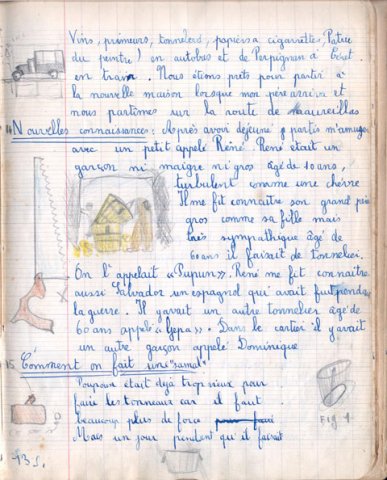 Vins, primeurs, tonneliers, papiers à cigarettes, Patrie
du peintre) en autobus et de Perpignan à Céret
en train. Nous étions prêts pour partir à
la nouvelle maison lorsque mon père arriva et
nous partîmes sur la route de maureillas
14 Nouvelles connaissances: Après avoir déjeuné je partis m'amuser
avec un petit appelé René. René était un
garçon ni maigre ni gros âgé de 10 ans,
turbulent comme une chèvre
Il me fit connaître son grand père
gros comme sa fille mais
très sympathique âgé de
60 ans il faisait de tonnelier.
On l'appelait "Pupun". René me fit connaître
aussi Salvador un espagnol qui avait fui pendant
la guerre. Il y avait un autre tonnelier âgé de
60 ans appelé "Yepa". Dans le cartier il y avait
un autre garçon appelé Dominique
15 Comment on fait une "samal"
Poupoun était déjà trop vieux pour
faire les tonneaux car il faut
beaucoup plus de force
Mais un jour pendent qu'il faisait
Fig 1